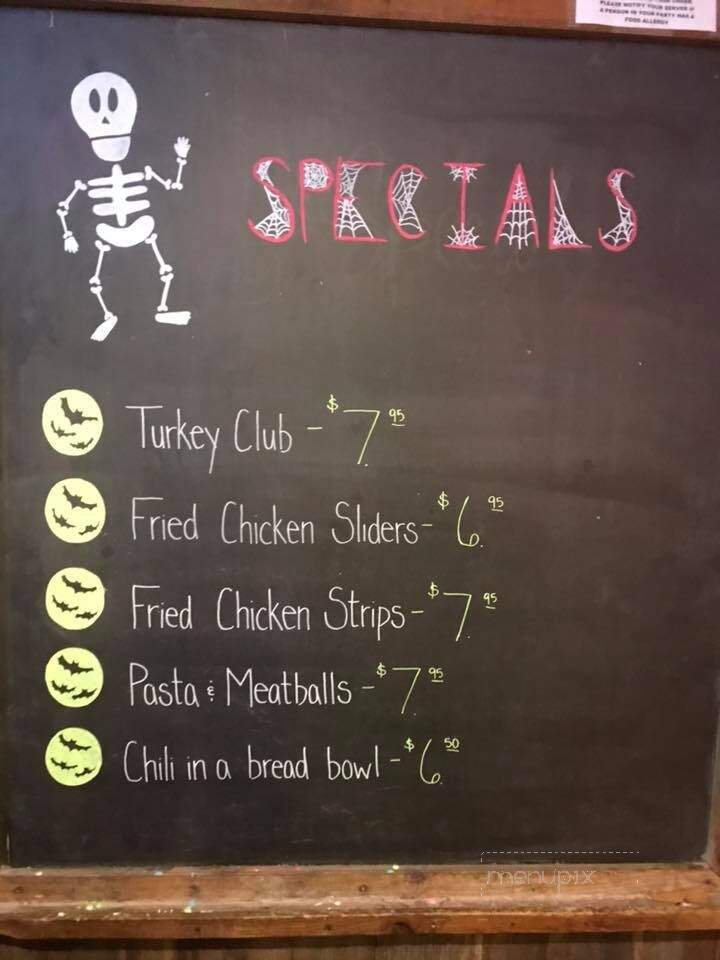 PLEASE NOTIFY YOUR SERVER IF
A PERSON IN YOUR PARTY HAS A
FOOD ALLERGY
SPECIALS
Turkey Club - $7.95
Fried Chicken Sliders - $6.95
Fried Chicken Strips - $7.95
Pasta & Meatballs - $7.95
Chili in a bread bowl - $6.50
menupix